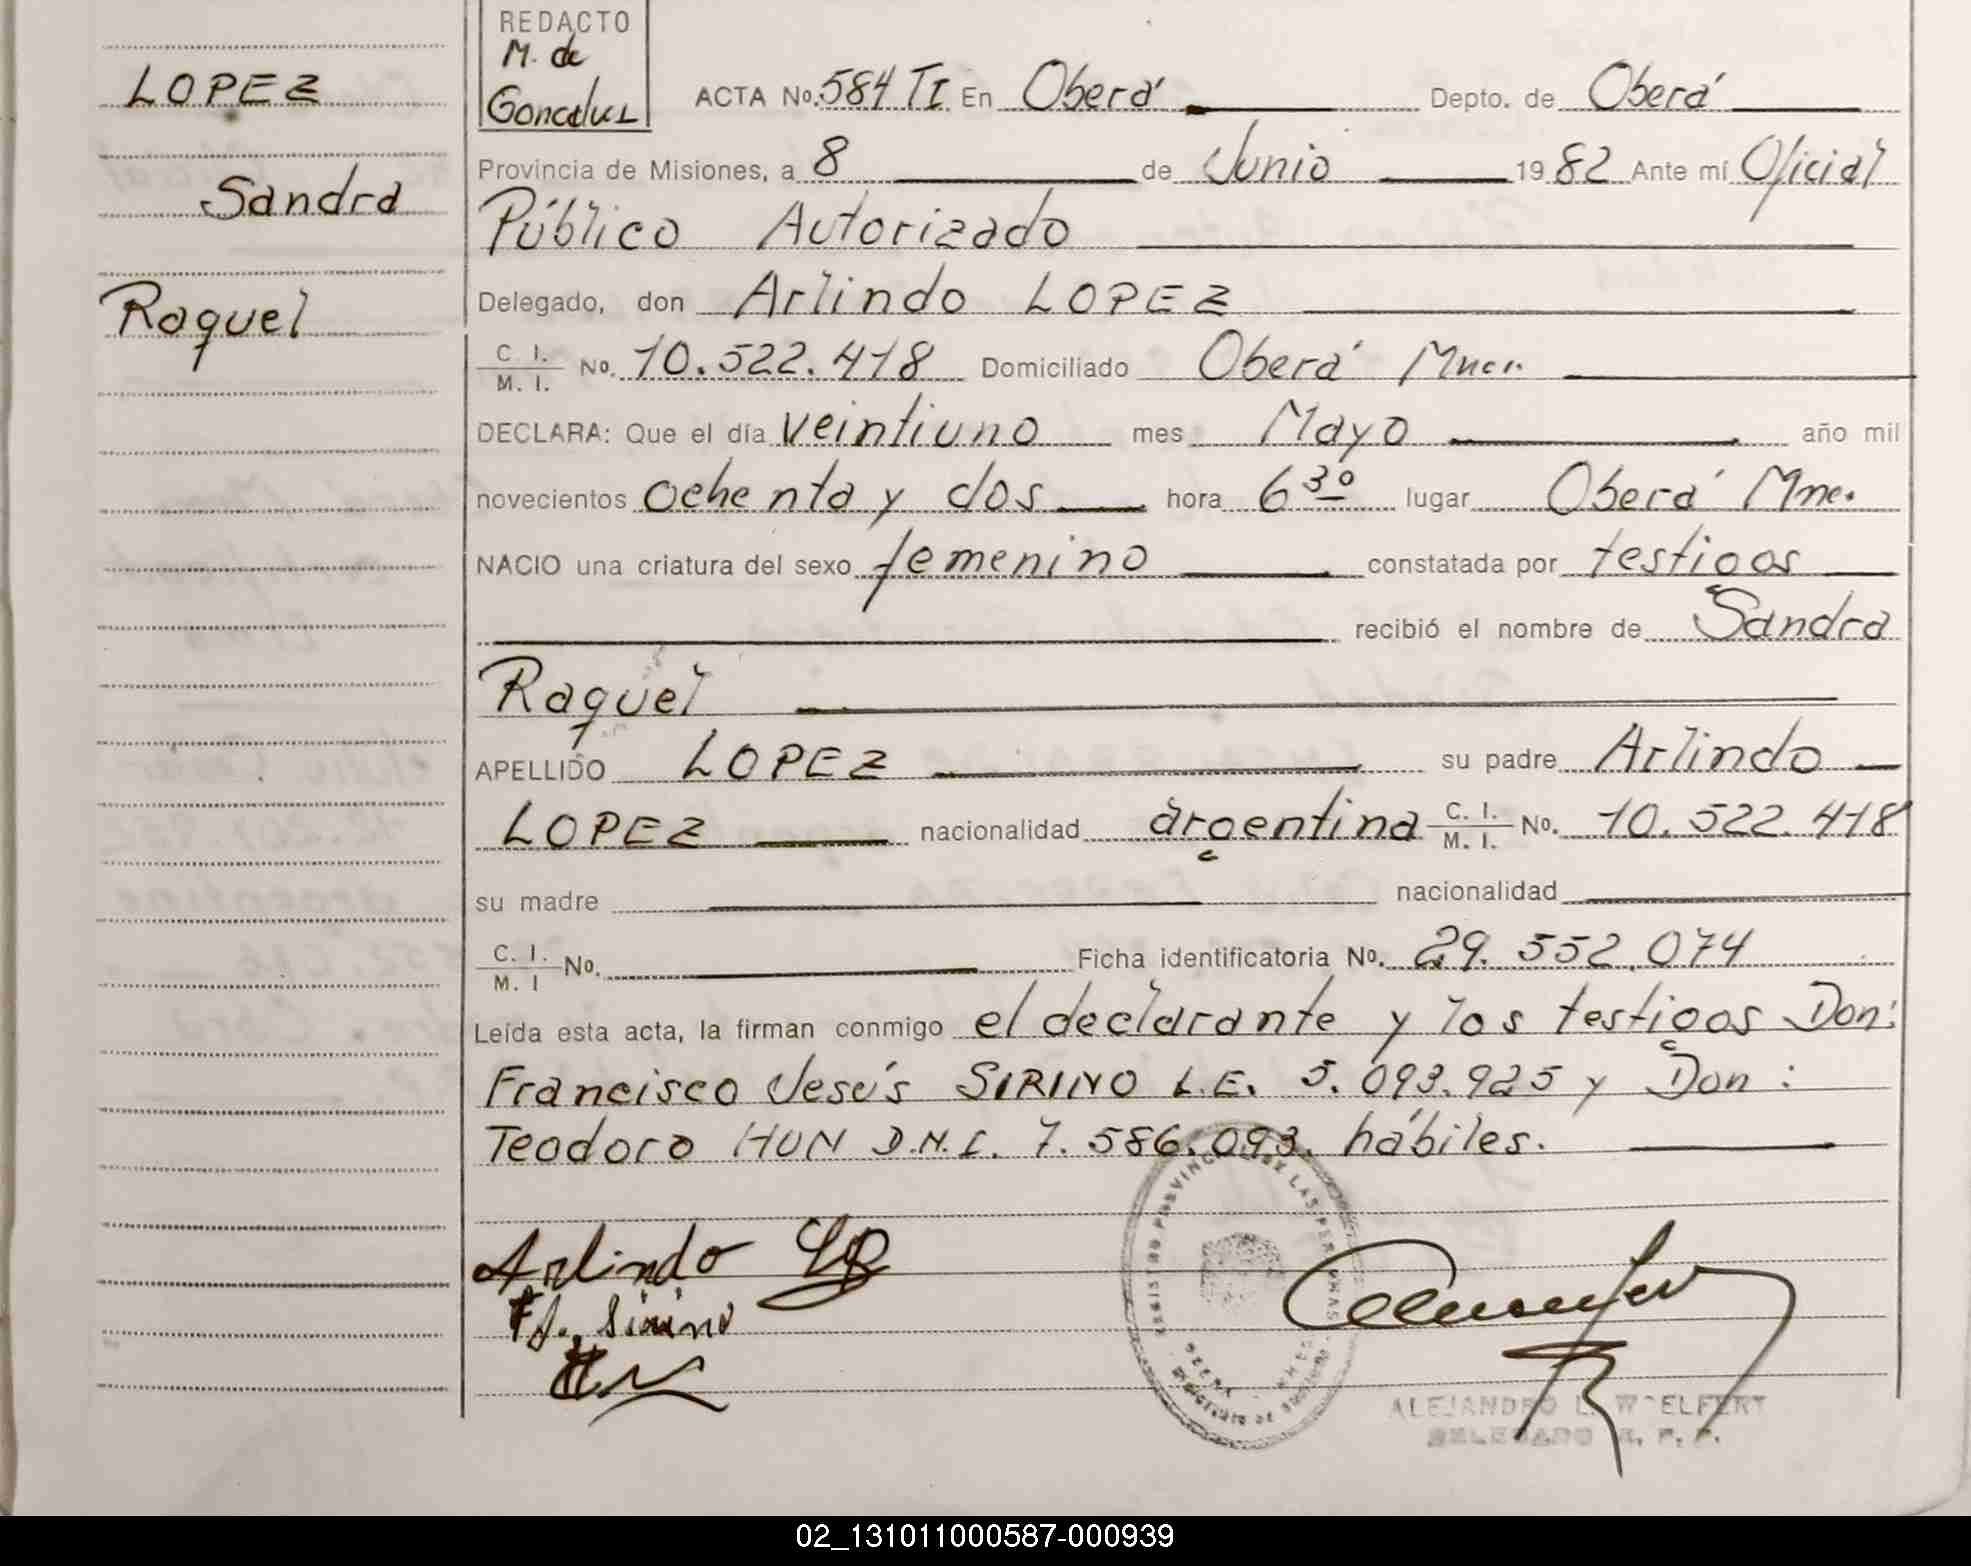 LOPEZ
Sandra
Raquel
REDACTO
M. de
ACTA No. 584 TI En Oberá Depto. de Oberá
Provincia de Misiones, a 8 de Junio 1982 Ante mí Oficial
Público Autorizado
Delegado, don Arlindo LOPEZ
C. I.
M. I. No. 10.522.418 Domiciliado Oberá Mnes.
DECLARA: Que el día veintiuno mes Mayo año mil
novecientos ochenta y dos hora 6 30 lugar Oberá Mnes.
NACIO una criatura del sexo femenino constatada por testigos
recibió el nombre de Sandra
Raquel
APELLIDO LOPEZ su padre Arlindo
LOPEZ nacionalidad argentina C. I.
M. I. No. 10.522.418
su madre nacionalidad
C. I.
M. I No. Ficha identificatoria No. 29.552.074
Leída esta acta, la firman conmigo el declarante y los testigos Don:
Francisco Jesús SIRINO L.E. 5.093.925 y Don:
Teodoro HUN D.N.I. 7.586.093. hábiles.
Arlindo
Sirino
ALEJANDRO L. WOELFERT
DELEGADO R. P. P.
02_131011000587-000939